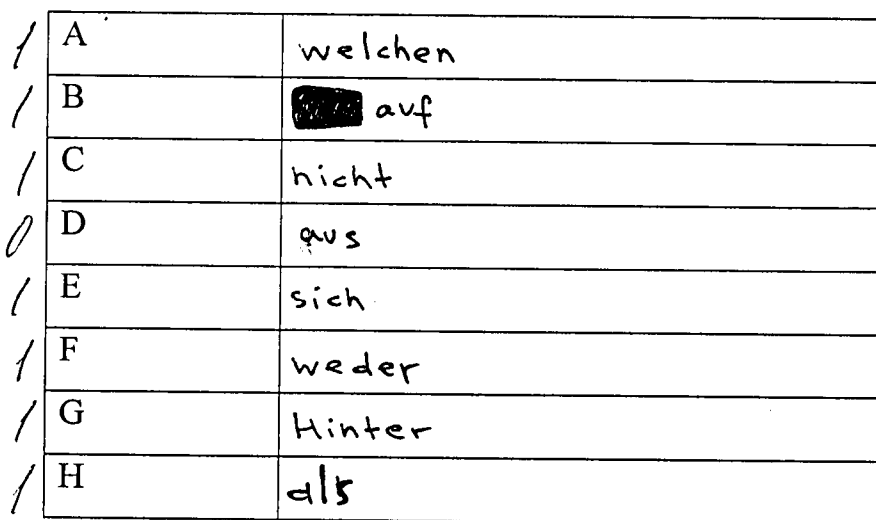 1 A welchen
1 B auf
1 C nicht
0 D aus
1 E sich
1 F weder
1 G Hinter
1 H als